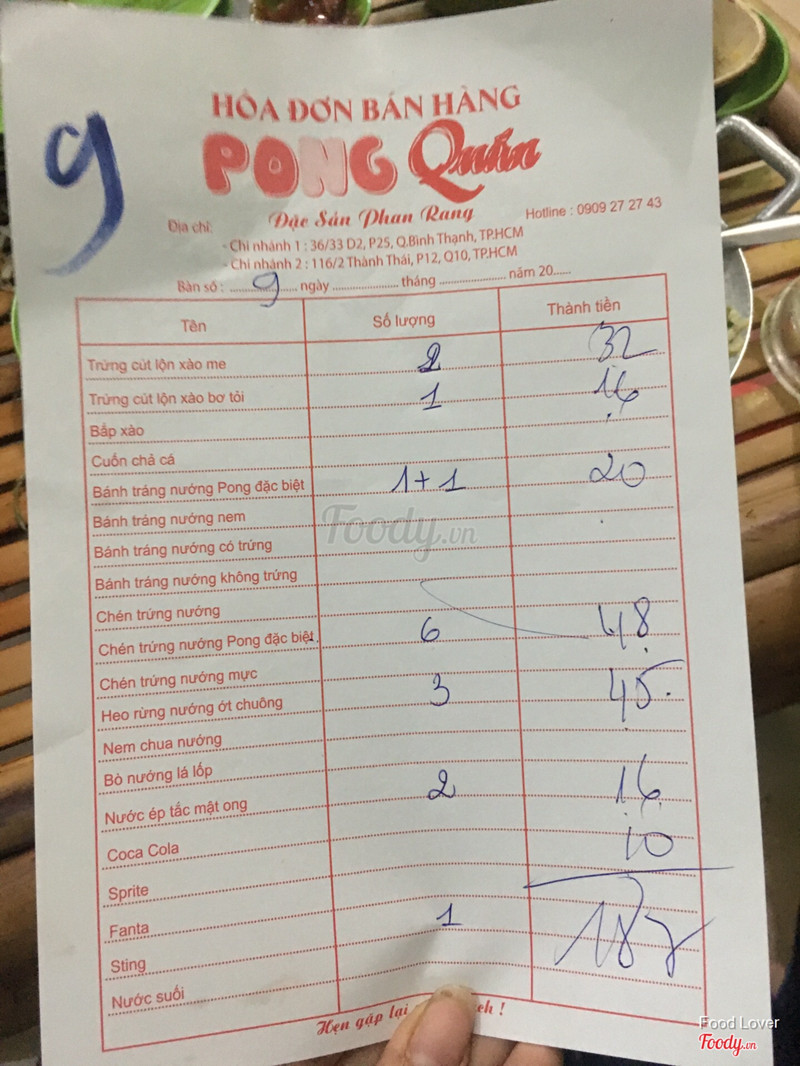 9
HÓA ĐƠN BÁN HÀNG
PONG Quán
Đặc Sản Phan Rang
Địa chỉ: Hotline : 0909 27 27 43
- Chi nhánh 1 : 36/33 D2, P25, Q.Bình Thạnh, TP.HCM
- Chi nhánh 2 : 116/2 Thành Thái, P12, Q10, TP.HCM
Bàn số : 9 ngày tháng năm 20
Tên Số lượng Thành tiền
Trứng cút lộn xào me 2 32
Trứng cút lộn xào bơ tỏi 1 16
Bắp xào
Cuốn chả cá
Bánh tráng nướng Pong đặc biệt 1+1 20
Bánh tráng nướng nem
Bánh tráng nướng có trứng
Bánh tráng nướng không trứng
Chén trứng nướng
Chén trứng nướng Pong đặc biệt 6 48
Chén trứng nướng mực
Heo rừng nướng ớt chuông 3 45
Nem chua nướng
Bò nướng lá lốp
Nước ép tắc mật ong 2 16
Coca Cola 10
Sprite
Fanta 1 187
Sting
Nước suối
Hẹn gặp lại ch !
Foody.vn
Food Lover
Foody.vn